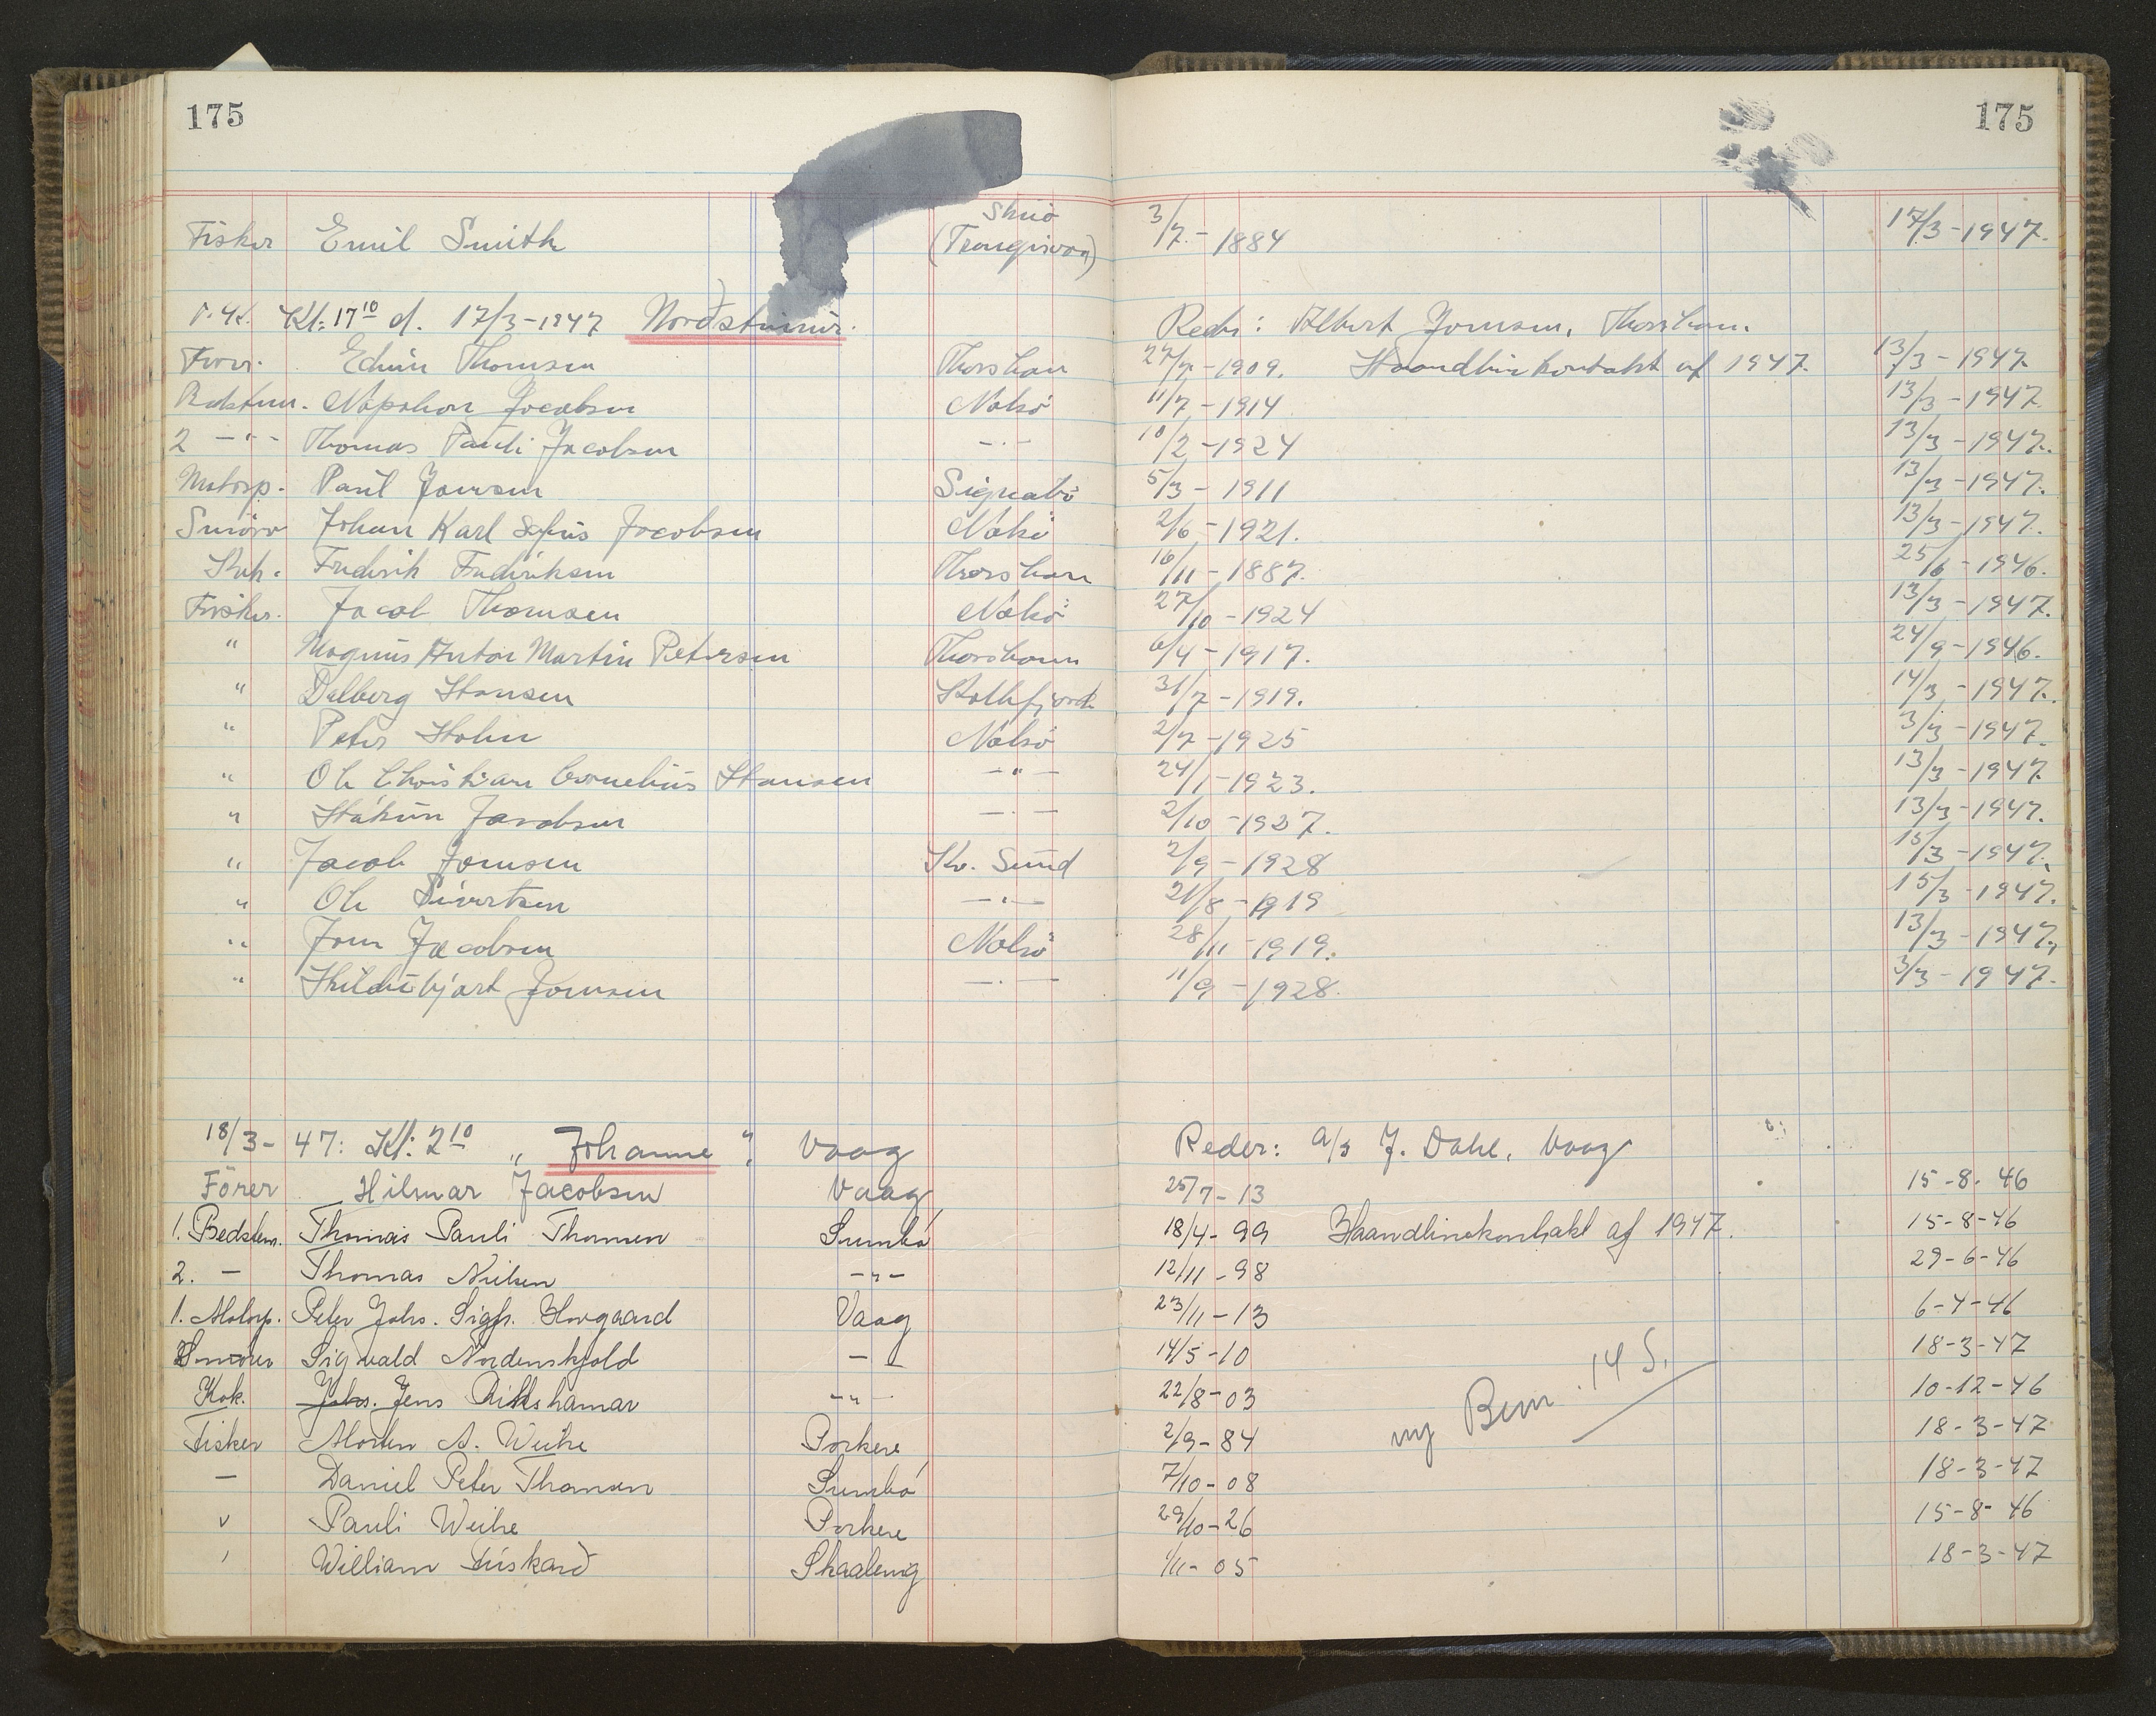 175 175
Skuö
Fisker Emil Smith (Trongisvaag) 3/7-1884 17/3-1947.
Kl: 17 10 d. 17/3-1947 Nordstjernir. Reder: Albert Joensen, Thorshavn.
Förer. Edmin Thomsen Thorshavn 27/7-1909. Haandlinekontrakt af 1947. 13/3-1947
Bedstem. Napoleon Jacobsen Nolsö 11/7-1914 13/3-1947
2 -"- Thomas Pauli Jacobsen -"- 10/2-1924 13/3-1947.
Motorp. Paul Joensen Signabö 5/3-1911 13/3-1947.
Smörer Johan Karl Sofus Jacobsen Nolsö 2/6-1921. 13/3-1947.
Kok. Frederik Frederiksen Thorshavn 16/11-1887. 25/6-1946.
Fisker. Jacob Thomsen Nolsö 27/10-1924 13/3-1947.
" Magnus Anton Martin Petersen Thorshavn 6/4-1917. 24/9-1946.
" Dalberg Hansen Kollefjord 31/7-1919. 14/3-1947.
" Peter Holm Nolsö 2/7-1925 3/3-1947
" Ole Christian Cornelius Hansen -"- 24/1-1923. 13/3-1947
" Hákun Jacobsen -"- 2/10-1927. 13/3-1947.
" Jacob Joensen Kv. Sund 2/9-1928 15/3-1947.
" Ole Sivertsen -"- 21/8-1919 15/3-1947.
" Joen Jacobsen Nolsö 28/11-1919. 13/3-1947.
" Hildibjart Joensen -"- 11/9-1928. 3/3-1947.
18/3-47: Kl: 2 10 "Johanne". Vaag Reder: A/S J. Dahl, Vaag
Förer Hilmar Jacobsen Vaag 25/7-13 15-8-46
1. Bedstem. Thomas Pauli Thomsen Sumbö 18/4-99 Haandlinekontrakt af 1947. 15-8-46
2. - Thomas Nielsen -"- 12/11-98 29-6-46
1. Motorp. Peter Johs. Sigfr. Hovgaard Vaag 23/11-13 6-4-46
Smörer Sigvald Nordenskjold - - 14/5-10 18-3-47
Kok. Johs. Jens Rikshamar -"- 22/8-03 ny Bem. 14 S. 10-12-46
Fisker Morten A. Weihe Porkere 2/9-84 18-3-47
- Daniel Peter Thomsen Sumbö 7/10-08 18-3-47
" Pauli Weihe Porkere 29/10-26 15-8-46
' William Kúskarð Skaaleng 1/11-05 18-3-47